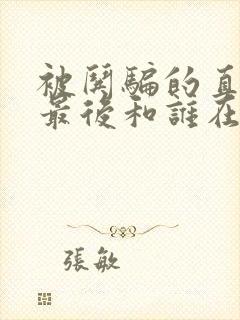 被鬨騙的真
最後和誰在
張敏